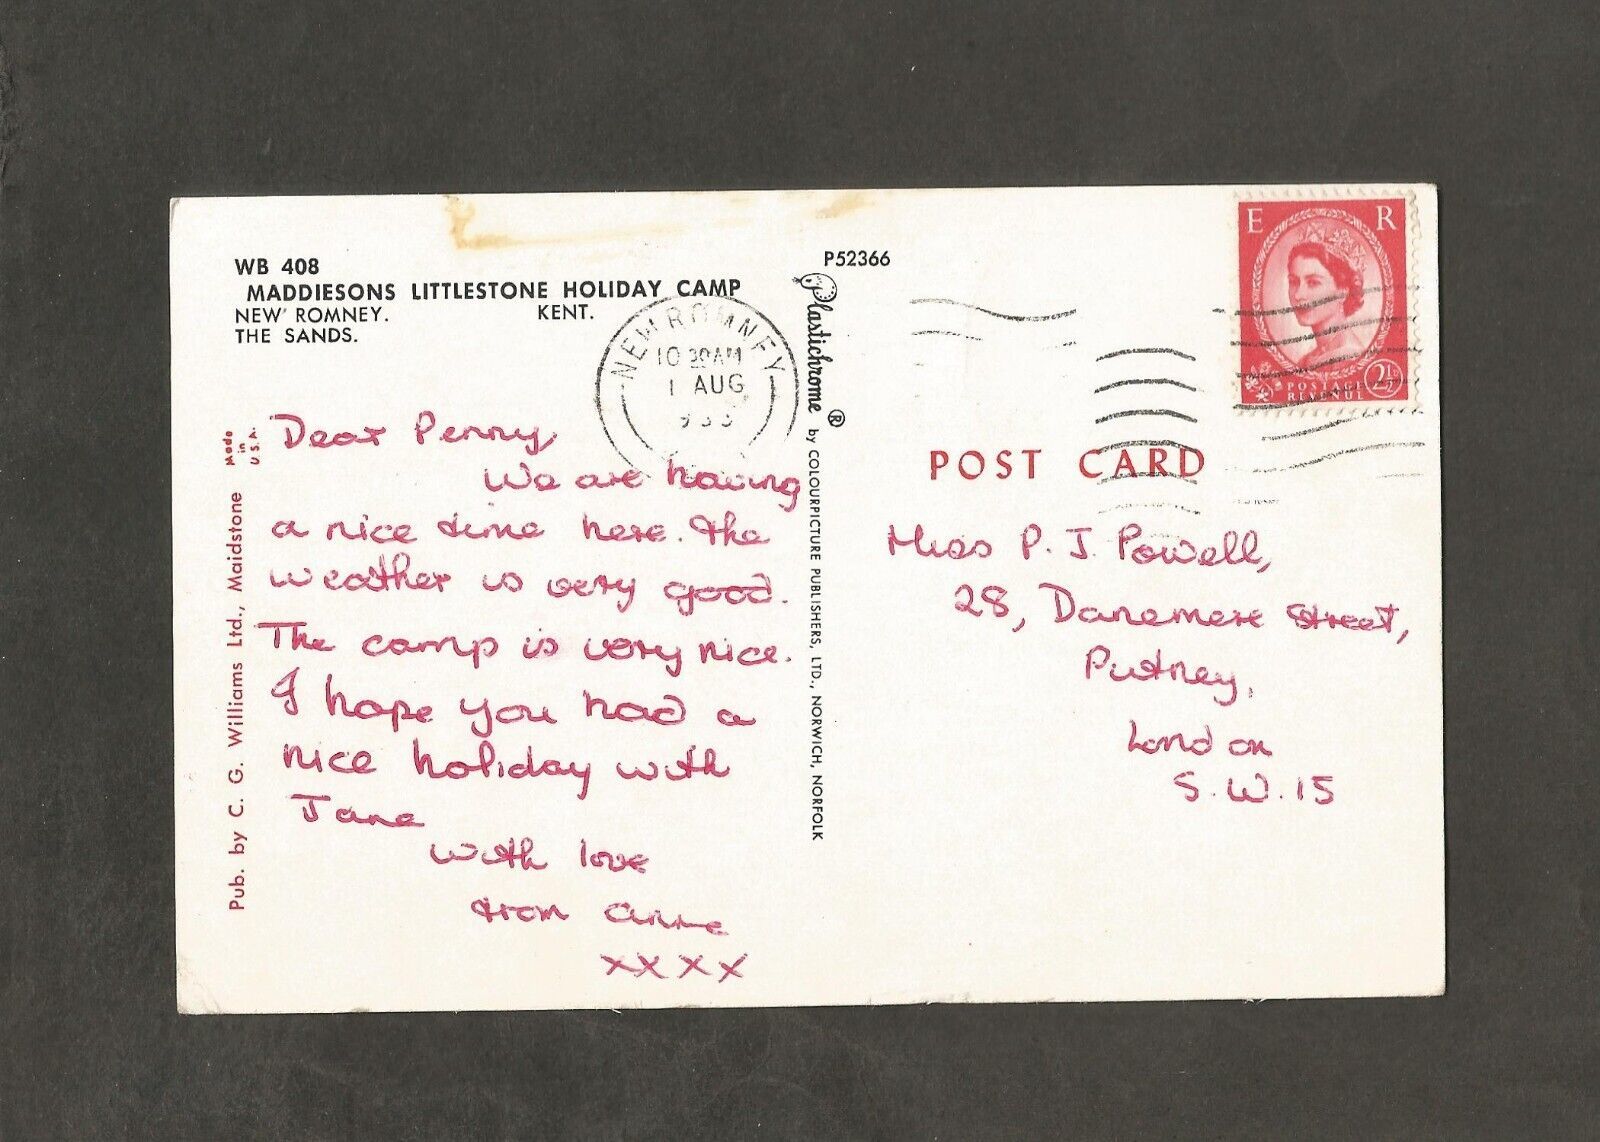 WB 408
MADDIESONS LITTLESTONE HOLIDAY CAMP
NEW ROMNEY. KENT.
THE SANDS.
NEW ROMNEY
10 30AM
1 AUG
Dear Penny,
We are having
a nice time here. the
weather is very good.
The camp is very nice.
I hope you had a
nice holiday with
Jane
with love
from anne
xxxx
Made
in
U.S.A.
Pub. by C. G. Williams Ltd., Maidstone
P52366
Plastichrome ® by COLOURPICTURE PUBLISHERS, LTD., NORWICH, NORFOLK
E R
POSTAGE
REVENUE
2½
POST CARD
Miss P. J. Powell,
28, Danemere street,
Putney,
London
S.W.15